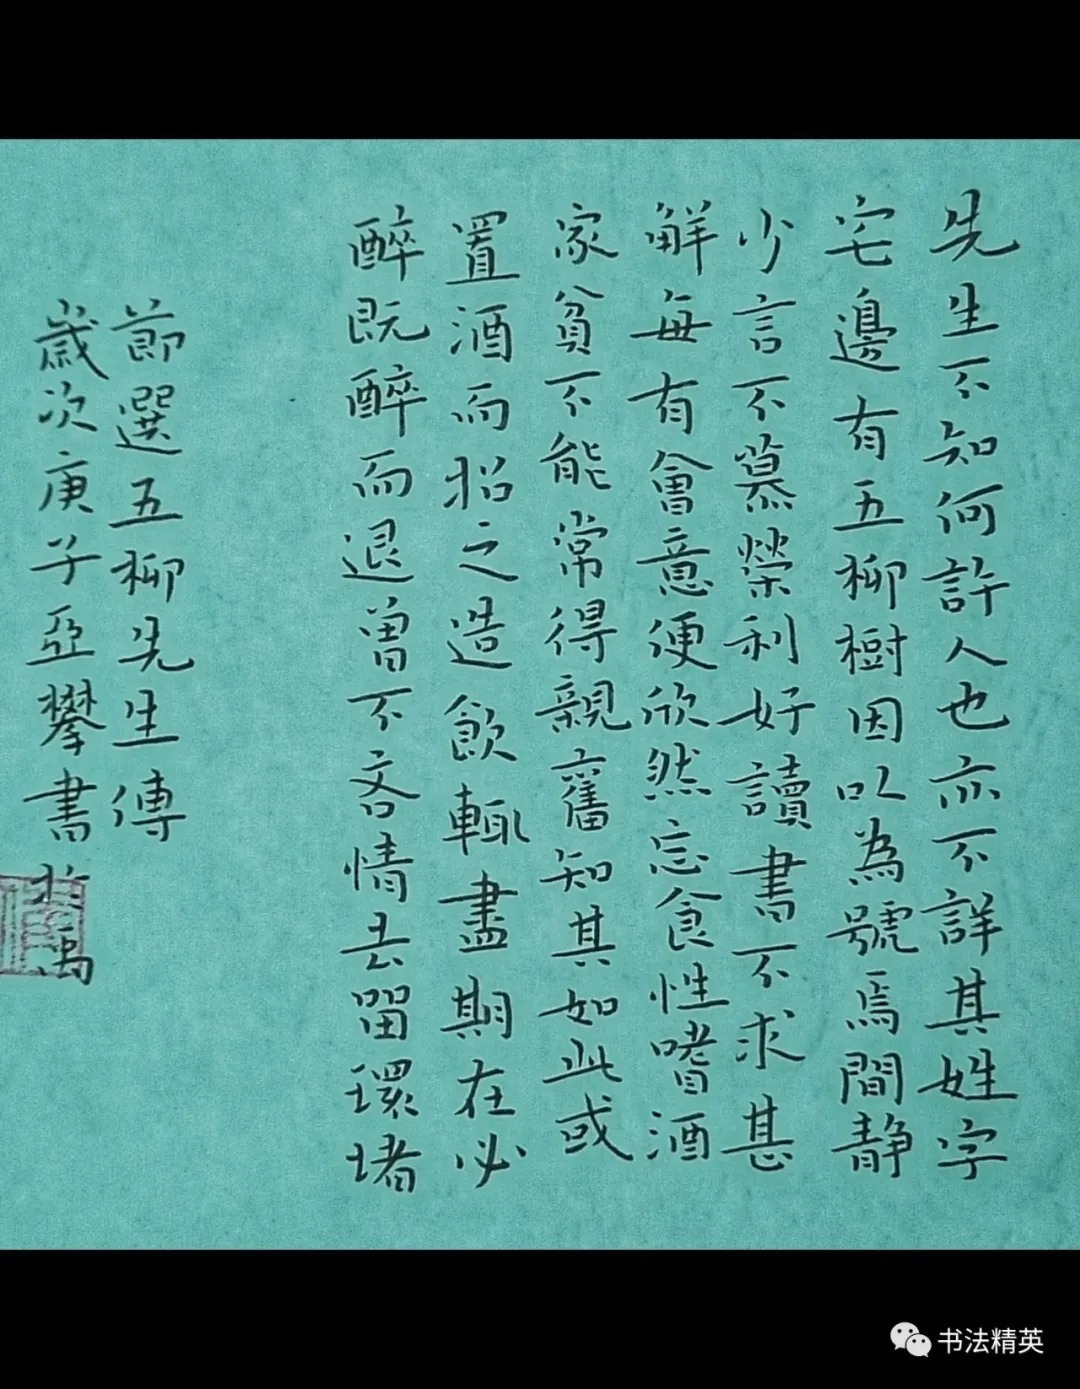 先生不知何許人也亦不詳其姓字
宅邊有五柳樹因以為號焉閒静
少言不慕榮利好讀書不求甚
解每有會意便欣然忘食性嗜酒
家貧不能常得親舊知其如此或
置酒而招之造飲輒盡期在必
醉既醉而退曾不吝情去留環堵
節選五柳先生傳
歲次庚子亞攀書於禹
书法精英